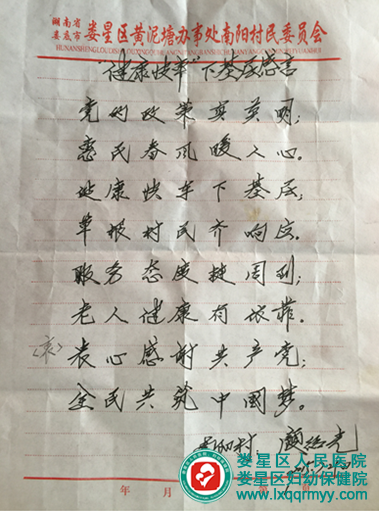 湖南省
娄底市 娄星区黄泥塘办事处南阳村民委员会
"健康快车"下基层感言
党的政策真英明；
惠民春风暖人心。
健康快车下基层；
草根村民齐响应。
服务态度挺周到；
老人健康有依靠。
<衷> 衷心感谢共产党；
全民共筑中国梦。
南阳村 颜
年 月
娄星区人民医院
娄星区妇幼保健院
www.lxqqrmyy.com